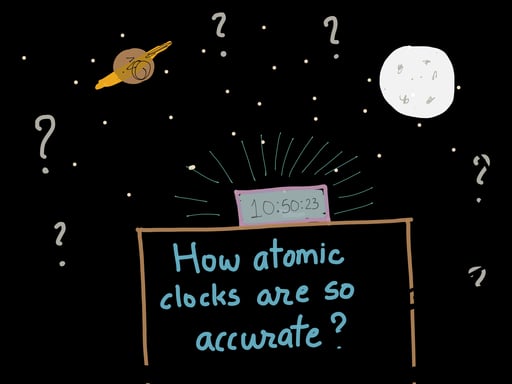 ? ?
?
?
?
?
10:50:23
How atomic
clocks are so
accurate?